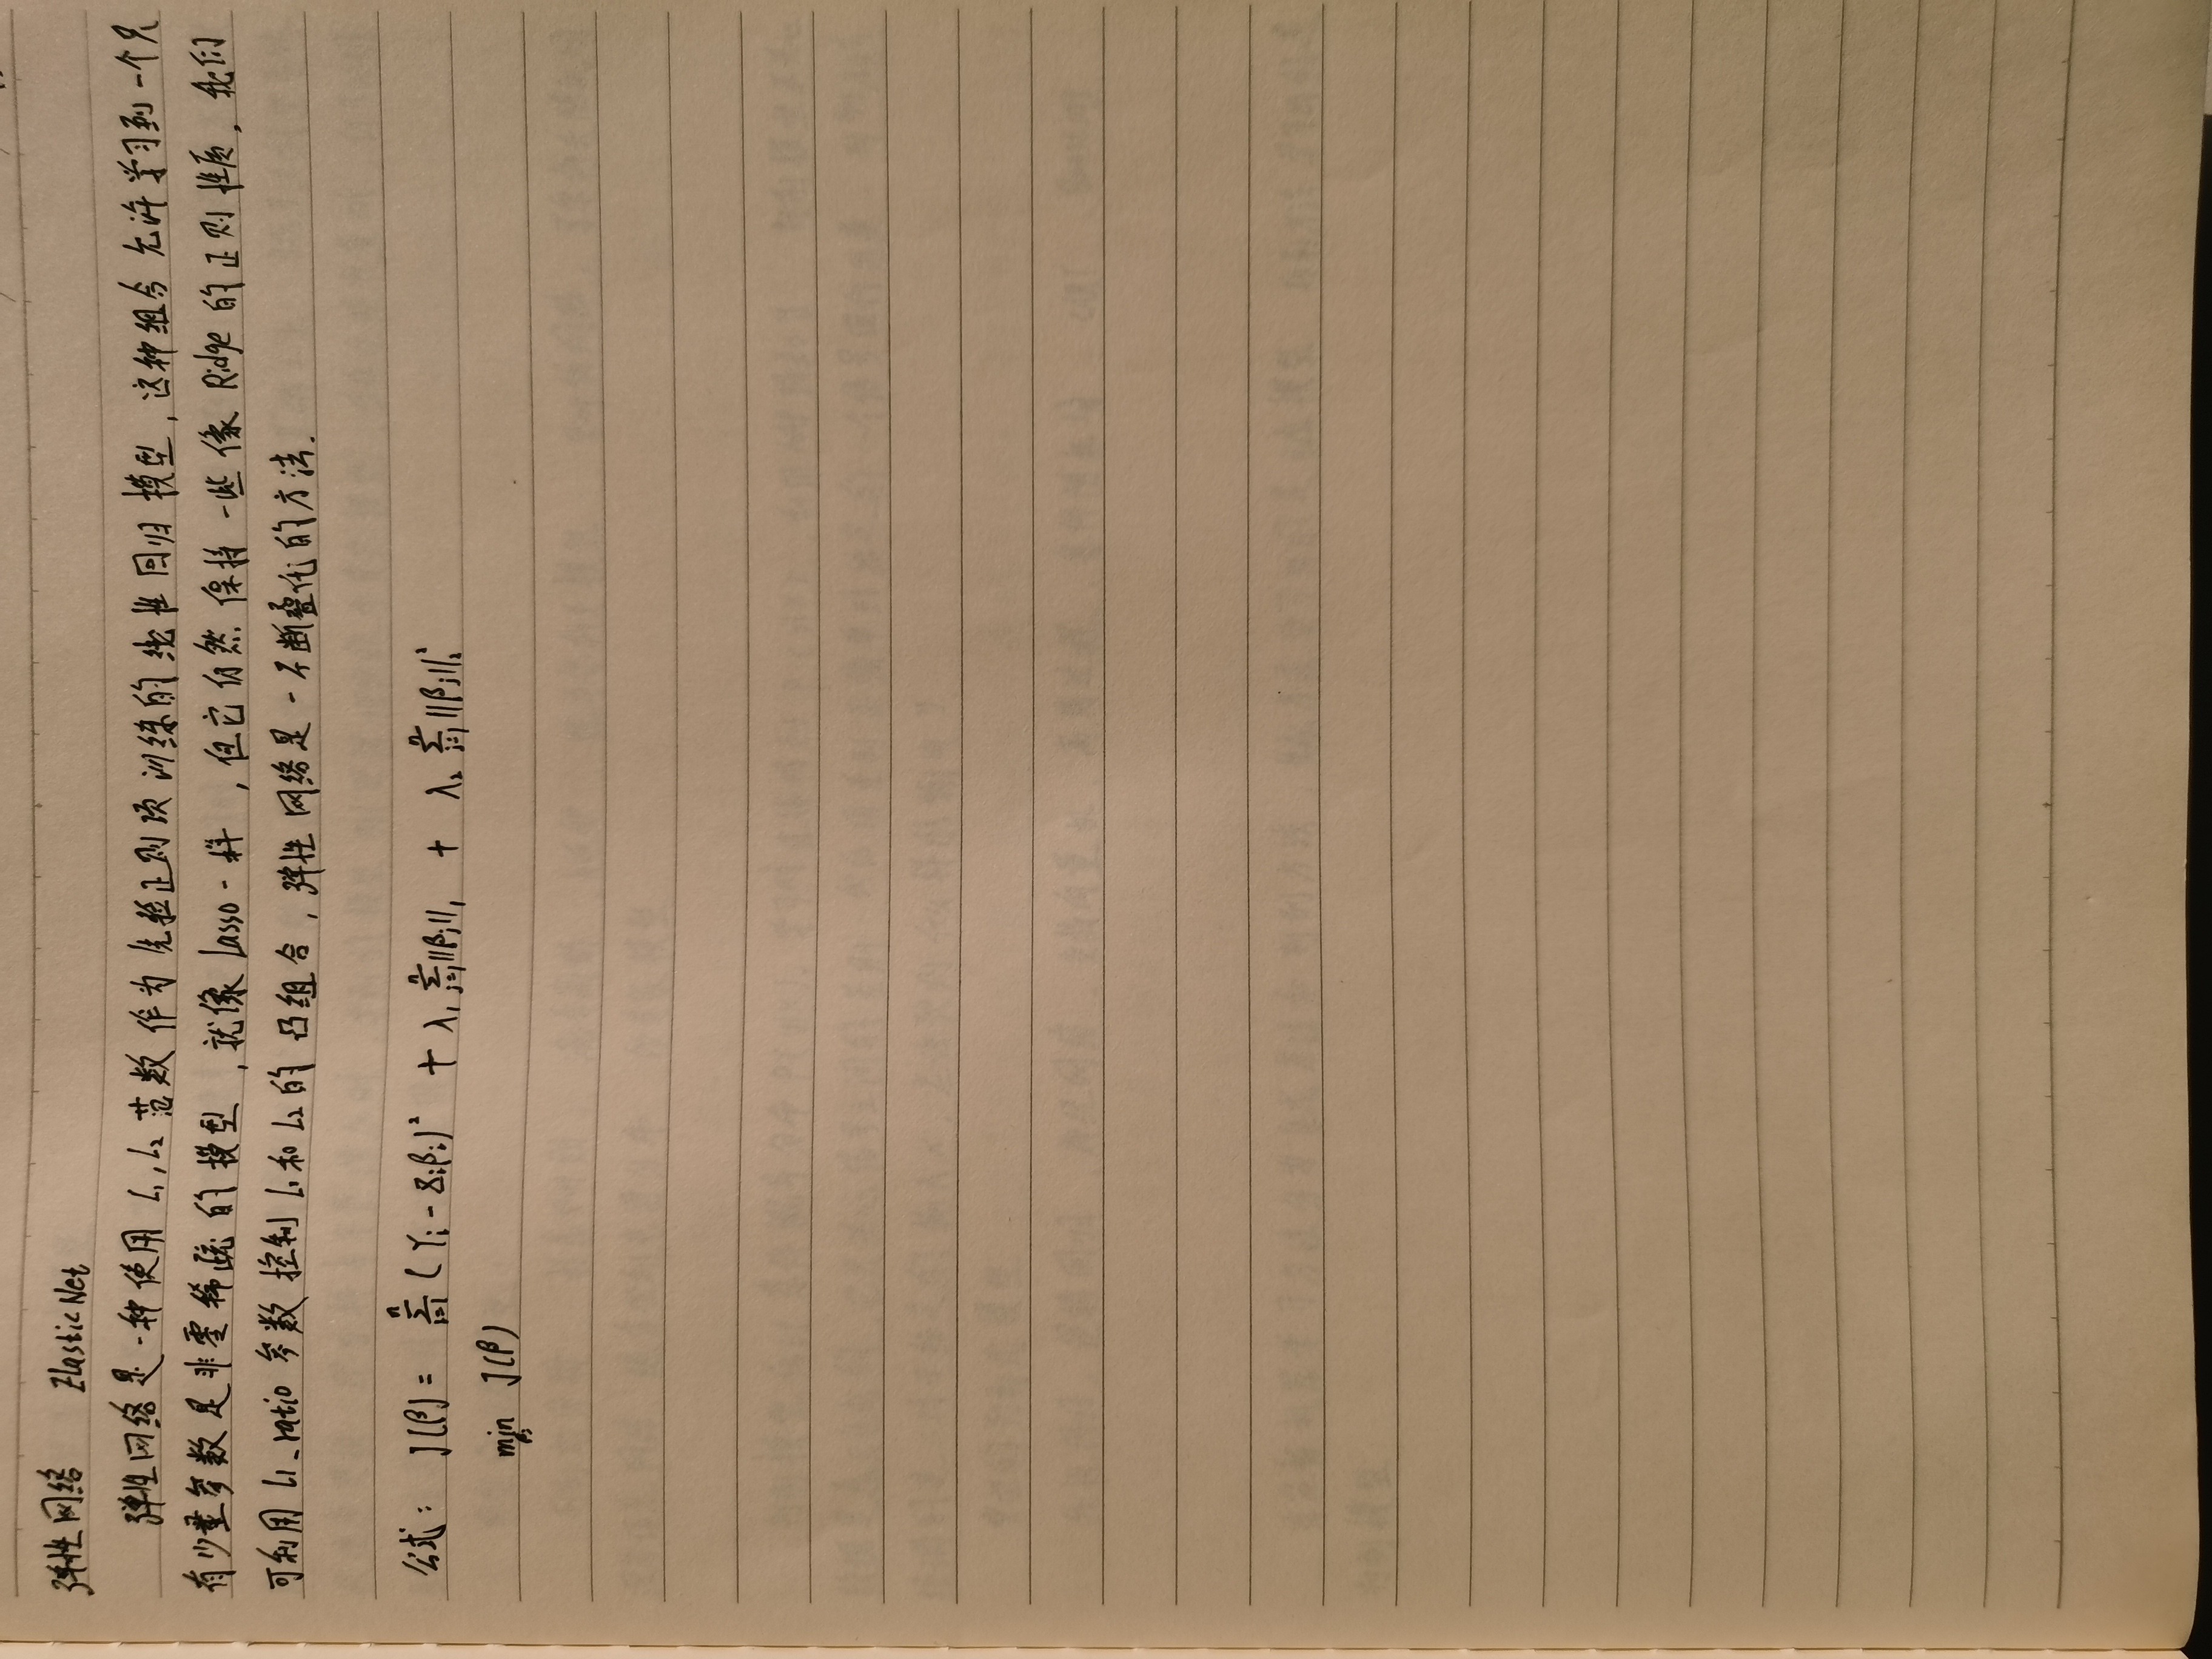 弹性网络 ElasticNet
弹性网络是一种使用 L₁,L₂ 范数作为先验正则项训练的线性回归模型,这种组合允许学习到一个只
有少量参数是非零稀疏的模型,就像 Lasso 一样,但它仍然保持一些像 Ridge 的正则性质,我们
可利用 L1_ratio 参数控制 L₁ 和 L₂ 的凸组合,弹性网络是一不断叠代的方法.
公式: J(β) = Σⁿᵢ₌₁ (Yᵢ - Xᵢβᵢ)² + λ₁ Σⁿⱼ₌₁ ||βⱼ||₁ + λ₂ Σⁿⱼ₌₁ ||βⱼ||₂²
min J(β)